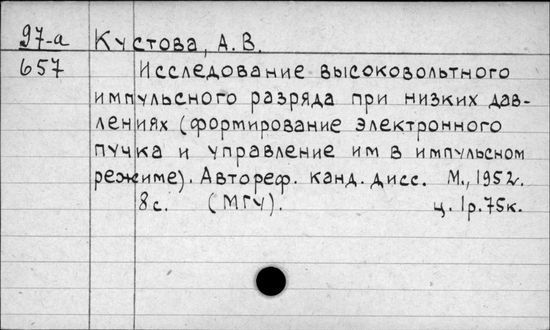 97-а Кустова, А. В.
657 Исследование высоковольтного
импульсного разряда при низких дав-
лениях (формирование электронного
пучка и управление им в импульсном
режиме). Автореф. канд. дисс. М., 1952.
8 с. (МГУ). ц. 1р.75к.